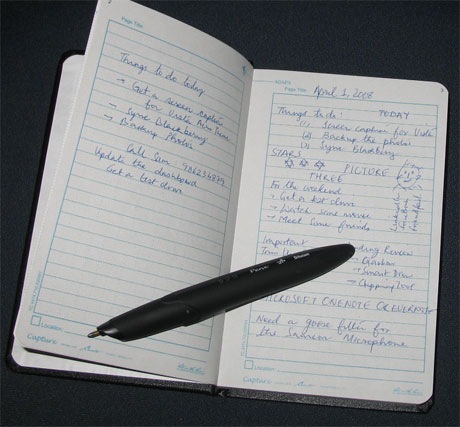 Page Title:
Things to do today
→ Get a screen capture
for Vista Aero
→ Sync Blackberry
→ Backup Photos
Call Sam
Update the dashboard
Get a test done
Location
Capture
ADAPX
Page Title: April 1, 2008
Things to do: TODAY
(1) Screen capture for Vista
(2) Backup the photos
(3) Sync Blackberry
STARS
PICTURE
THREE
For the weekend
→ Get a test done
→ Watch some movies
→ Meet some friends
Important
Review
→ Smart Draw
MICROSOFT ONENOTE OR EVERNOTE
Need a goose filler for
the Samson Microphone
Location
Capture